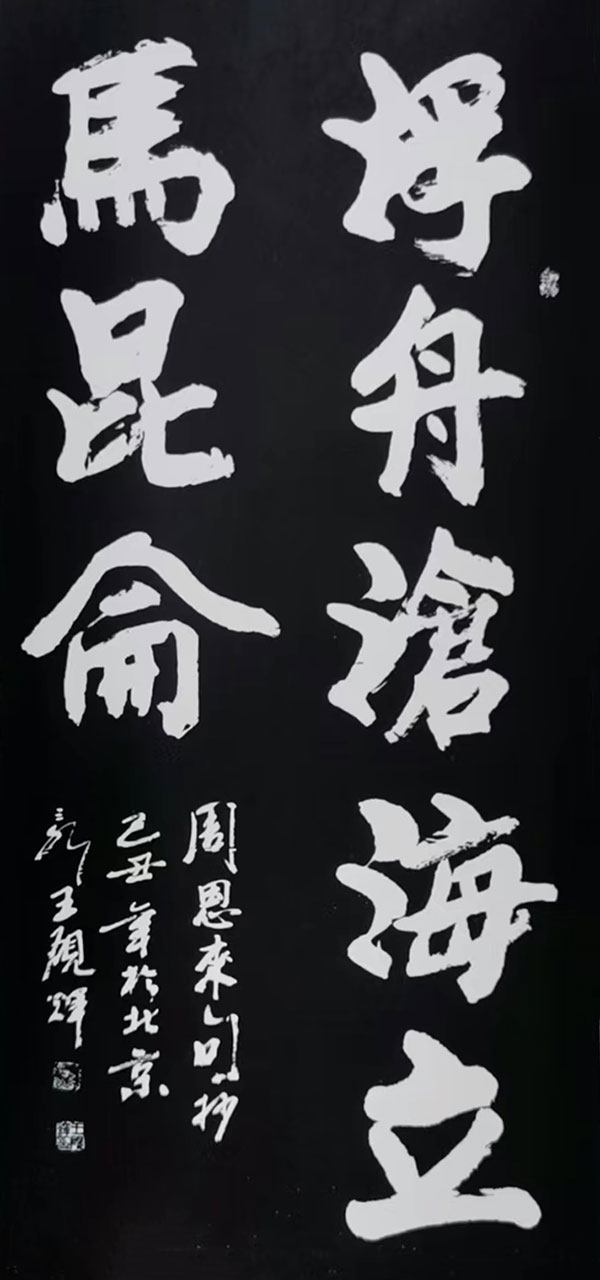 浮舟滄海立
馬昆侖
周恩來句抄
己丑年於北京
王硯輝